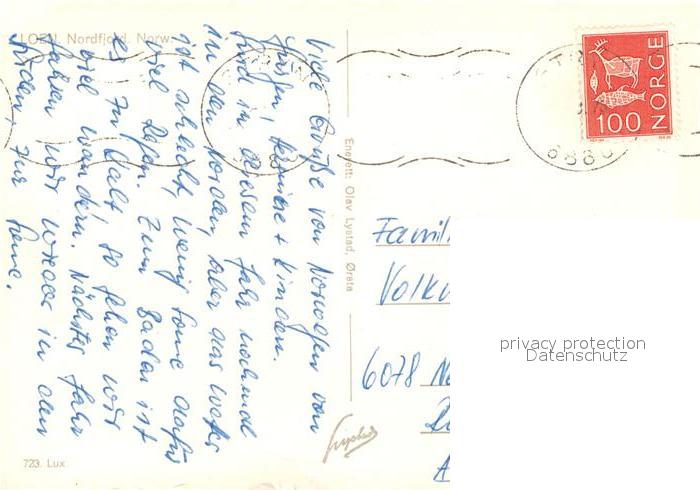 LOEN, Nordfjord, Norw.
Viele Grüße von Norwegen von
+ Kindern.
Sind in diesem Jahr nochmal
in den Norden, aber das Wetter
ist schlecht, wenig Sonne dafür
viel Regen. Zum Baden ist
es zu kalt, so gehen wir
viel wandern. Nächstes Jahr
fahren wir wieder in den
Süden, zur Sonne.
723. Lux
Enerett: Olav Lystad, Ørsta
NORGE
100
Famil
Volk
6078
privacy protection
Datenschutz